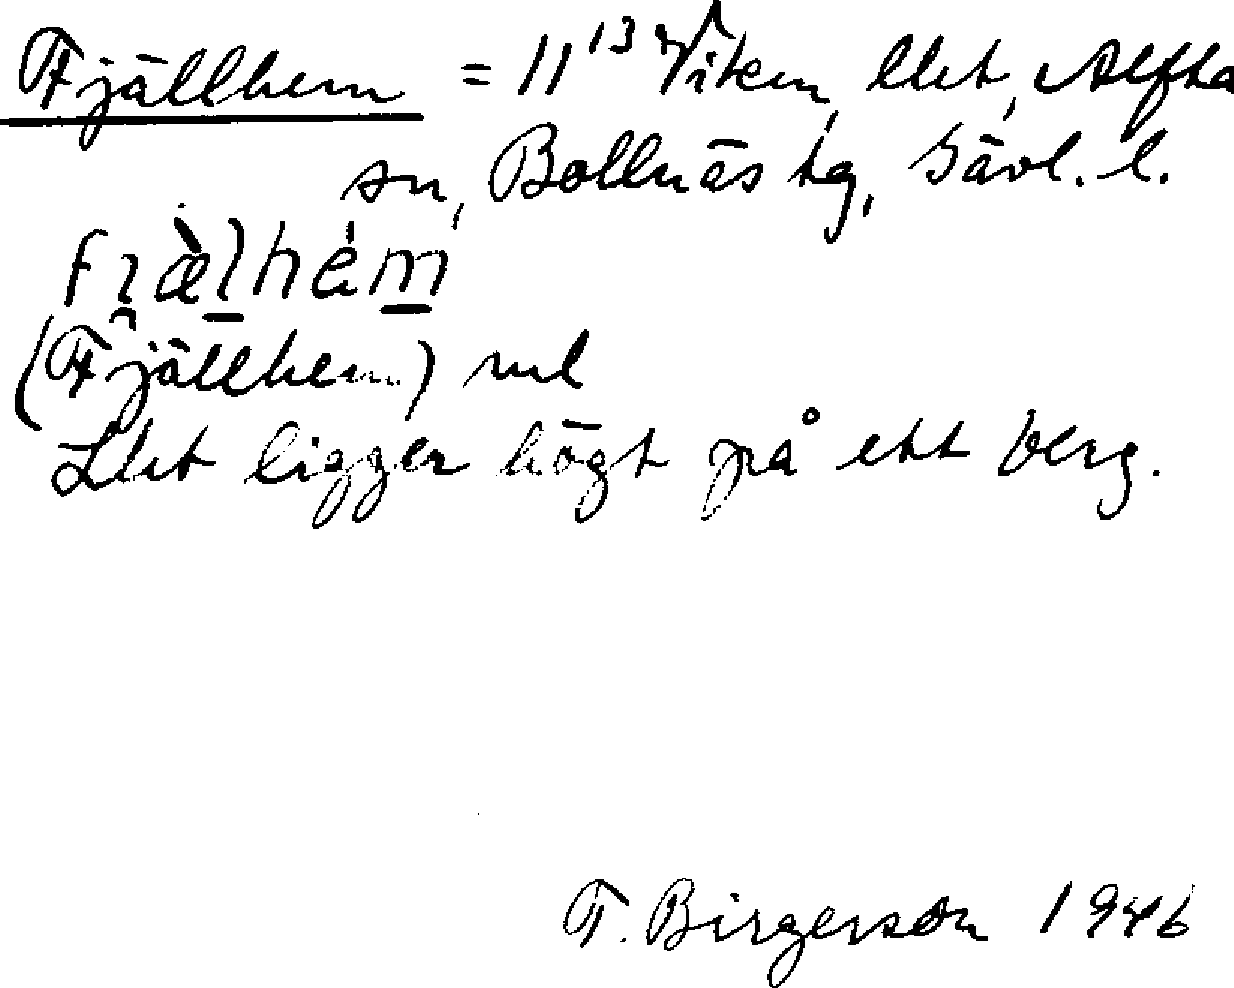 Fjällhem = 11¹³ Viken, llht, Alfta
sn, Bollnäs tg, Gävl. l.
fi̯æ̀l̲hém̲
(Fjällhem) rnl
Llht ligger högt på ett berg.
T. Birgerson 1946